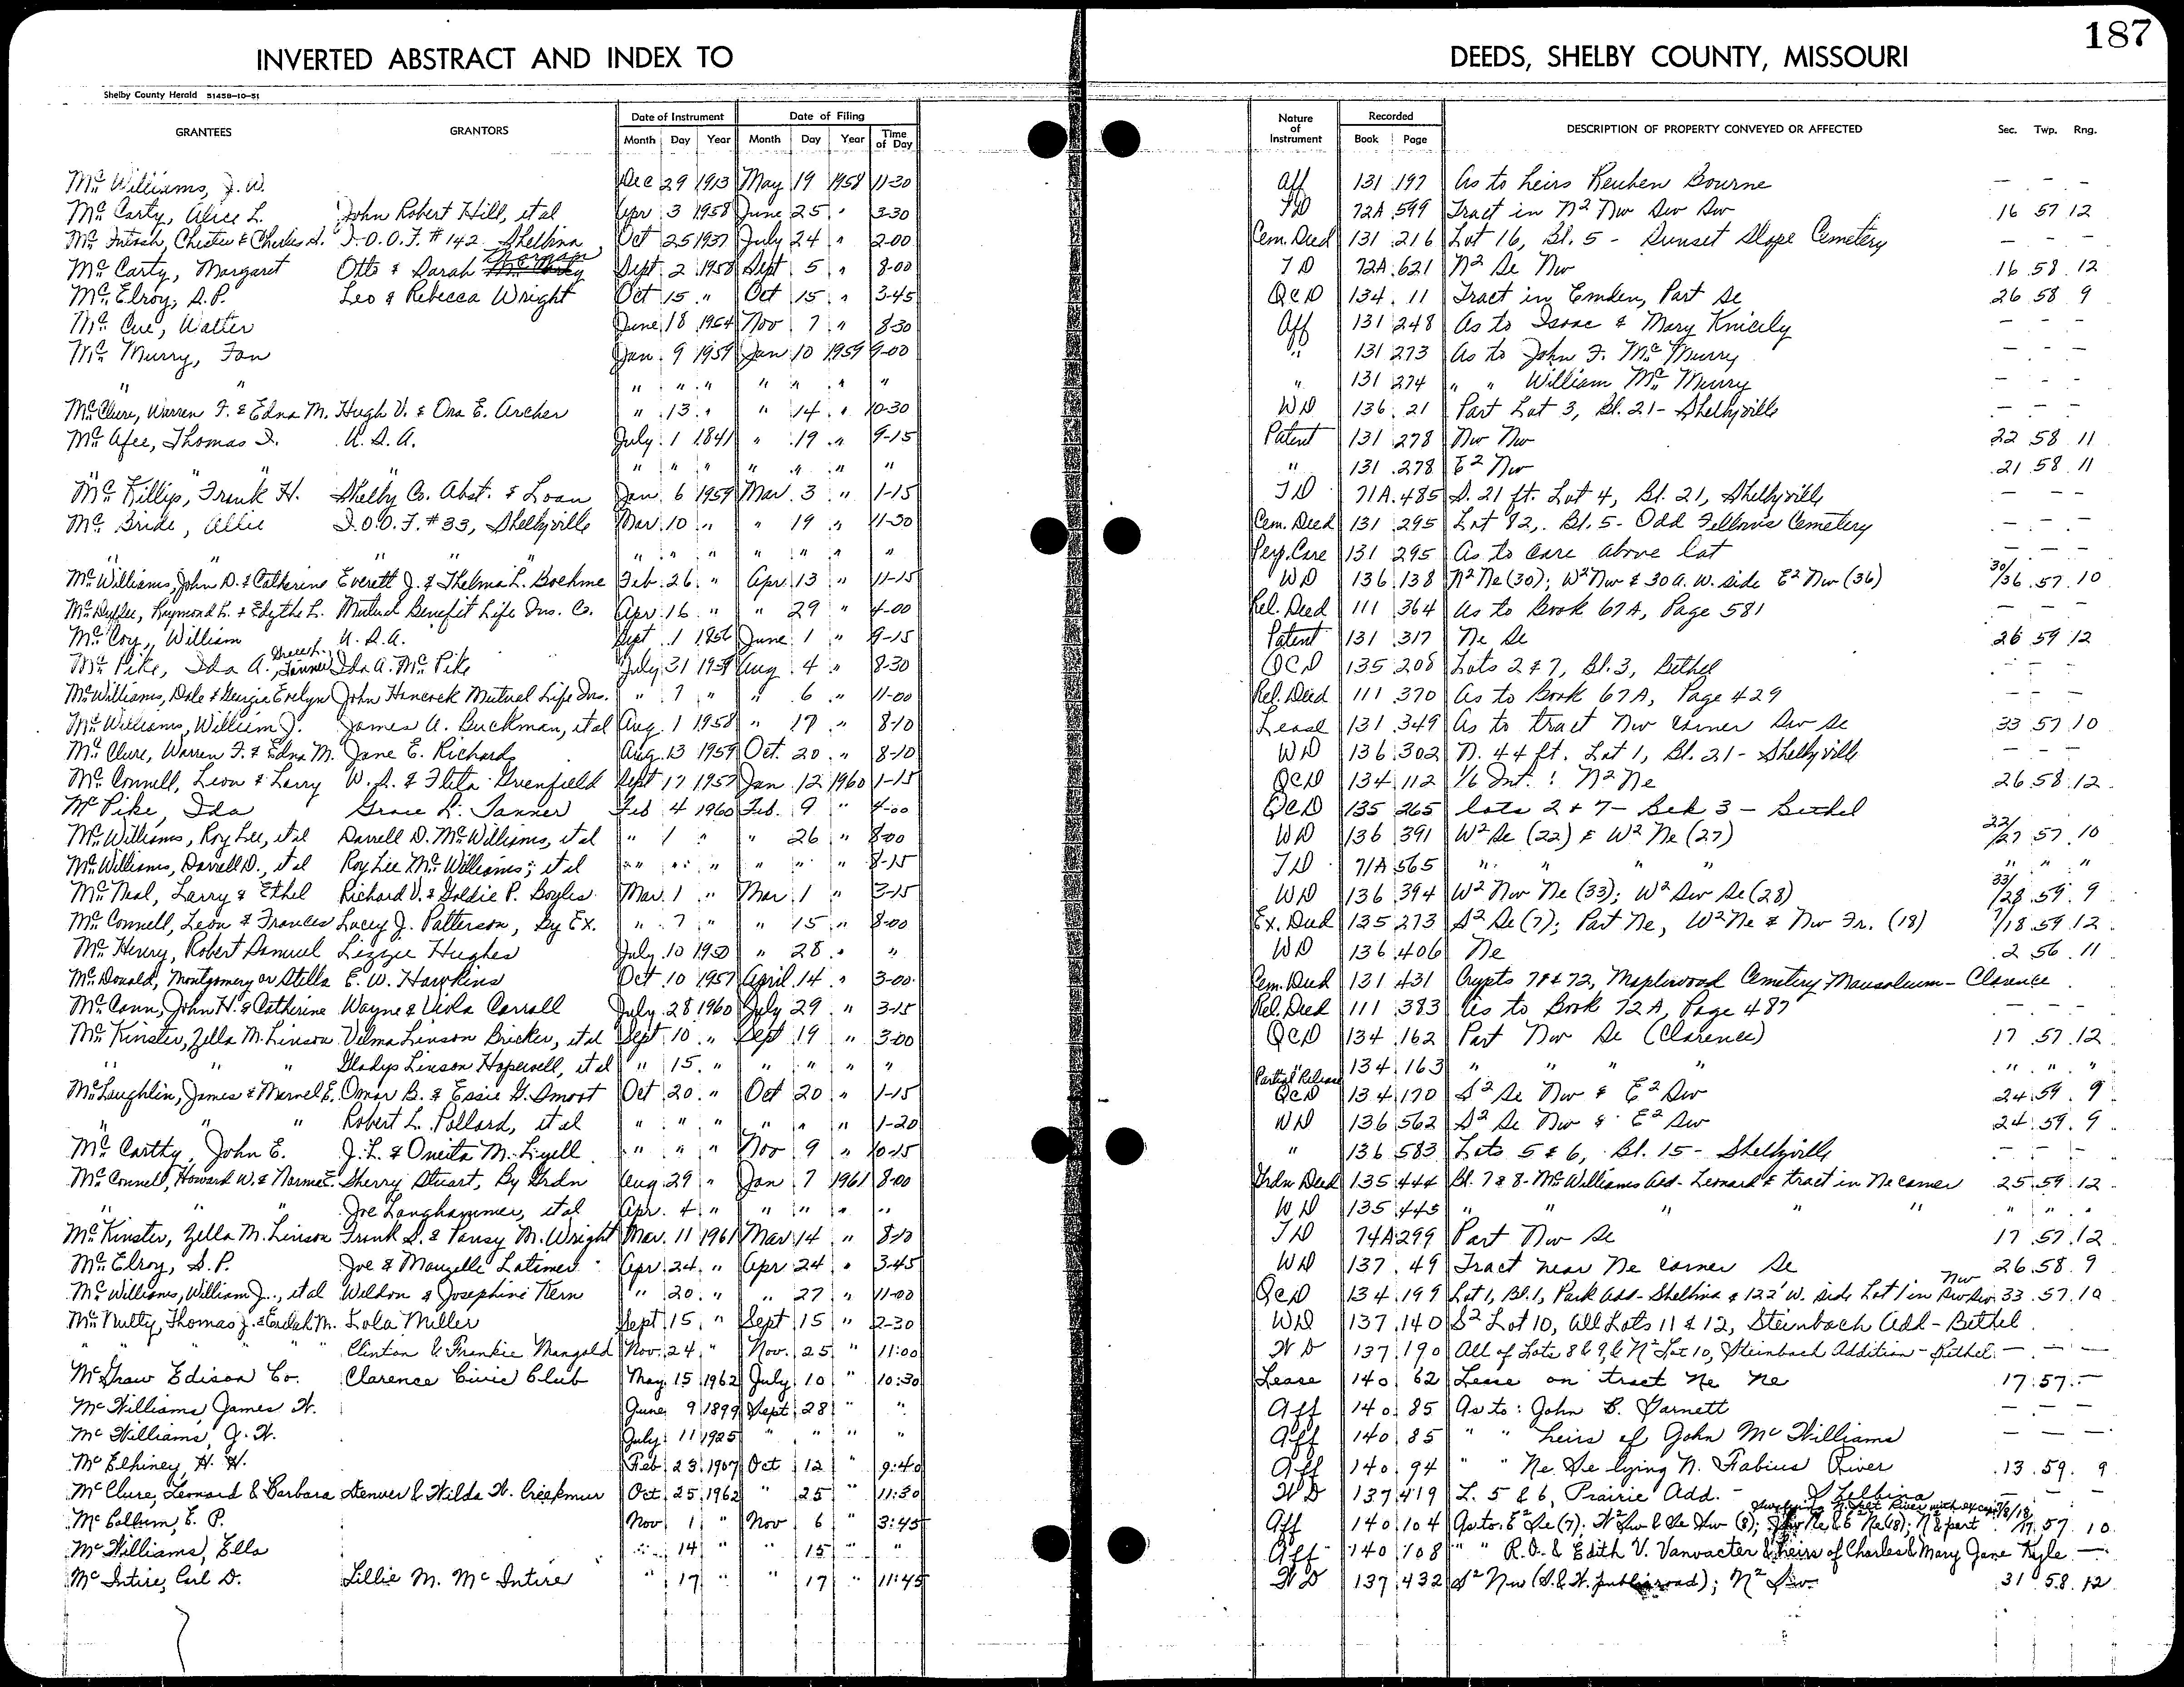 187
INVERTED ABSTRACT AND INDEX TO DEEDS, SHELBY COUNTY, MISSOURI
Shelby County Herald 51458-10-51
GRANTEES GRANTORS Date of Instrument Date of Filing Nature of Instrument Recorded DESCRIPTION OF PROPERTY CONVEYED OR AFFECTED Sec. Twp. Rng.
Month Day Year Month Day Year Time of Day Book Page
Mc Williams, J. W. Dec 29 1913 May 19 1958 11-30 Aff 131 197 As to heirs Reuben Bourne — - -
Mc Carty, Alice L. John Robert Hill, et al Apr 3 1958 June 25 " 3-30 TD 72A 599 Tract in N2 Nw Sw Sw 16 57 12
Mc Intosh, Chester & Charles S. I.O.O.F. #142 Shelbina Oct 25 1937 July 24 " 2-00 Cem. Deed 131 216 Lot 16, Bl. 5 - Sunset Slope Cemetery — - -
Mc Carty, Margaret Otto & Sarah Morgan Sept 2 1958 Sept 5 " 8-00 TD 72A 621 N2 Se Nw 16 58 12
Mc Elroy, S.P. Leo & Rebecca Wright Oct 15 " Oct 15 " 3-45 QCD 134 11 Tract in Emden, Part Se 26 58 9
Mc Cue, Walter June 18 1954 Nov 7 " 8-30 Aff 131 248 As to Isaac & Mary Knicely — - -
Mc Murry, Fon Jan 9 1959 Jan 10 1959 9-00 " 131 273 As to John F. Mc Murry — - -
" " " " " " " " " " 131 274 " " William Mc Murry — - -
Mc Clure, Warren F. & Edna M. Hugh V. & Ona E. Archer " 13 " " 14 " 10-30 WD 136 21 Part Lot 3, Bl. 21 - Shelbyville — - -
Mc Afee, Thomas I. U.S.A. July 1 1841 " 19 " 9-15 Patent 131 278 Nw Nw 22 58 11
" " " " " " " " " " " " 131 278 E2 Nw 21 58 11
Mc Killip, Frank H. Shelby Co. Abst. & Loan Jan 6 1959 Mar 3 " 1-15 TD 71A 485 S. 21 ft. Lot 4, Bl. 21, Shelbyville — - -
Mc Bride, Allie I.O.O.F. #33, Shelbyville Mar 10 " " 19 " 11-30 Cem. Deed 131 295 Lot 82, Bl. 5 - Odd Fellows Cemetery — - -
" " " " " " " " " " " " Perp. Care 131 295 As to care above lot — - -
Mc Williams, John D. & Catherine Everett J. & Thelma L. Boehme Feb 26 " Apr 13 " 11-15 WD 136 138 N2 Ne (30); W2 Nw & 30 A. W. side E2 Nw (36) 30/36 57 10
Raymond L. & Edythe L. Mutual Benefit Life Ins. Co. Apr 16 " " 29 " 4-00 Rel. Deed 111 364 As to Book 67A, Page 581 — - -
Mc Coy, William U.S.A. Sept 1 1856 June 1 " 9-15 Patent 131 317 Ne Se 26 59 12
Mc Pike, Ida A., Grace L. Tanner Ida A. Mc Pike July 31 1959 Aug 4 " 8-30 QCD 135 208 Lots 2 & 7, Bl. 3, Bethel - - -
Mc Williams, Dale & Georgia Evelyn John Hancock Mutual Life Ins. " 7 " " 6 " 11-00 Rel. Deed 111 370 As to Book 67A, Page 429 - - -
Mc Williams, William J. James A. Buckman, et al Aug 1 1958 " 17 " 8-10 Lease 131 349 As to tract Nw corner Sw Se 33 57 10
Mc Clure, Warren F. & Edna M. Jane E. Richards Aug 13 1959 Oct. 20 " 8-10 WD 136 302 N. 44 ft. Lot 1, Bl. 21 - Shelbyville — - -
Mc Connell, Leon & Larry W. S. & Fleta Greenfield Sept 17 1957 Jan 12 1960 1-15 QCD 134 112 1/6 Int. : N2 Ne 26 58 12
Mc Pike, Ida Grace L. Tanner Feb 4 1960 Feb. 9 " 4-00 QCD 135 265 Lots 2 & 7 - Bek 3 - Bethel
Mc Williams, Roy Lee, et al Darrell D. Mc Williams, et al " 1 " " 26 " 8-00 WD 136 391 W2 Se (22) & W2 Ne (27) 22/27 57 10
Mc Williams, Darrell D., et al Roy Lee Mc Williams; et al " " " " " " 8-15 TD 71A 565 " " " " " " "
Mc Neal, Larry & Ethel Richard V. & Goldie P. Boyles Mar. 1 " Mar. 1 " 3-15 WD 136 394 W2 Nw Ne (33); W2 Sw Se (28) 33/28 59 9
Mc Connell, Leon & Frances Lucy J. Patterson, By Ex. " 7 " " 15 " 8-00 Ex. Deed 135 273 S2 Se (7); Part Ne, W2 Ne & Nw Fr. (18) 7/18 59 12
Mc Henry, Robert Samuel Lizzie Hughes July 10 1950 " 28 " " WD 136 406 Ne 2 56 11
Mc Donald, Montgomery or Stella E. W. Hawkins Oct 10 1957 April 14 " 3-00 Cem. Deed 131 431 Crypts 71 & 72, Maplewood Cemetery Mausoleum - Clarence
Mc Cann, John H. & Catherine Wayne & Viola Carroll July 28 1960 July 29 " 3-15 Rel. Deed 111 383 As to Book 72A, Page 487 - - -
Mc Kinster, Zella M. Linson Velma Linson Bricker, et al Sept 10 " Sept 19 " 3-00 QCD 134 162 Part Nw Se (Clarence) 17 57 12
" " " Gladys Linson Hopewell, et al " 15 " " " " " " 134 163 " " " " " " "
Mc Laughlin, James & Marvel E. Omar B. & Essie G. Smoot Oct 20 " Oct 20 " 1-15 Partial Release QCD 134 170 S2 Se Nw & E2 Sw 24 59 9
" " " Robert L. Pollard, et al " " " " " " 1-20 WD 136 562 S2 Se Nw & E2 Sw 24 59 9
Mc Carthy, John E. J. L. & Oneita M. Lyell " " " Nov 9 " 10-15 " 136 583 Lots 5 & 6, Bl. 15 - Shelbyville — - -
Mc Connell, Howard W. & Norma E. Sherry Stuart, By Grdn Aug 29 " Jan 7 1961 8-00 Grdn Deed 135 444 Bl. 7 & 8 - Mc Williams Add - Leonard & tract in Ne corner 25 59 12
" " " Joe Langhammer, et al Apr. 4 " " " " " WD 135 445 " " " " " " " "
Mc Kinster, Zella M. Linson Frank S. & Pansy M. Wright Mar. 11 1961 Mar 14 " 8-10 TD 74A 299 Part Nw Se 17 57 12
Mc Elroy, S. P. Joe & Mauzelle Latimer Apr 24 " Apr 24 " 3-45 WD 137 49 Tract near Ne corner Se 26 58 9
Mc Williams, William J., et al Weldon & Josephine Kern " 20 " " 27 " 11-00 QCD 134 199 Lot 1, Bl. 1, Park Add - Shelbina & 122' W. side Lot 1 in Nw Sw 33 57 10
Mc Nutty, Thomas J. & M. Lola Miller Sept 15 " Sept 15 " 2-30 WD 137 140 S2 Lot 10, All Lots 11 & 12, Steinbach Add - Bethel
" " " Clinton & Frankie Mangold Nov. 24 " Nov. 25 " 11:00 WD 137 190 All of Lots 8 & 9, & N2 Lot 10, Steinbach Addition - Bethel — - —
Mc Graw Edison Co. Clarence Civic Club May 15 1962 July 10 " 10:30 Lease 140 62 Lease on tract Ne Ne 17 57 —
Mc Williams, James W. June 9 1899 Sept 28 " " Aff 140 85 As to: John B. Garnett — - —
Mc Williams, J. W. July 11 1925 " " " " Aff 140 85 " " heirs of John Mc Williams — — —
Mc Elhiney, W. W. Feb 23 1907 Oct 12 " 9:40 Aff 140 94 " " Ne Se lying N. Fabius River 13 59 9
Mc Clure, Leonard & Barbara Denver & Wilda W. Creekmur Oct 25 1962 " 25 " 11:30 WD 137 419 L. 5 & 6, Prairie Add. - Shelbina — - —
Mc Collum, E. P. Nov 1 " Nov 6 " 3:45 Aff 140 104 As to: E2 Se (7); W2 Sw & Se Sw (8); Ne & E2 Ne (18); N2 & part 57 10
Mc Williams, Ella " 14 " " 15 " " Aff 140 108 " " R.O. & Edith V. Vanvacter & heirs of Charles & Mary Jane Kyle —
Mc Intire, Carl D. Lillie M. Mc Intire " 17 " " 17 " 11:45 WD 137 432 S2 Nw (S. & W. public road); N2 Sw 31 58 12